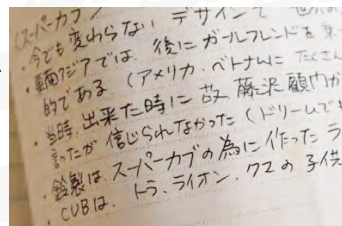 (スーパーカブ
・今でも変わらない デザインで
・東南アジアでは、後にガールフレンドを乗
的である (アメリカ・ベトナムに たくさん
・当時、出来た時に 故 藤沢顧問が
言ったが 信じられなかった (ドリームでも
・鈴製は、スーパーカブの為に作ったラ
・CUBは、トラ、ライオン、クマの子供